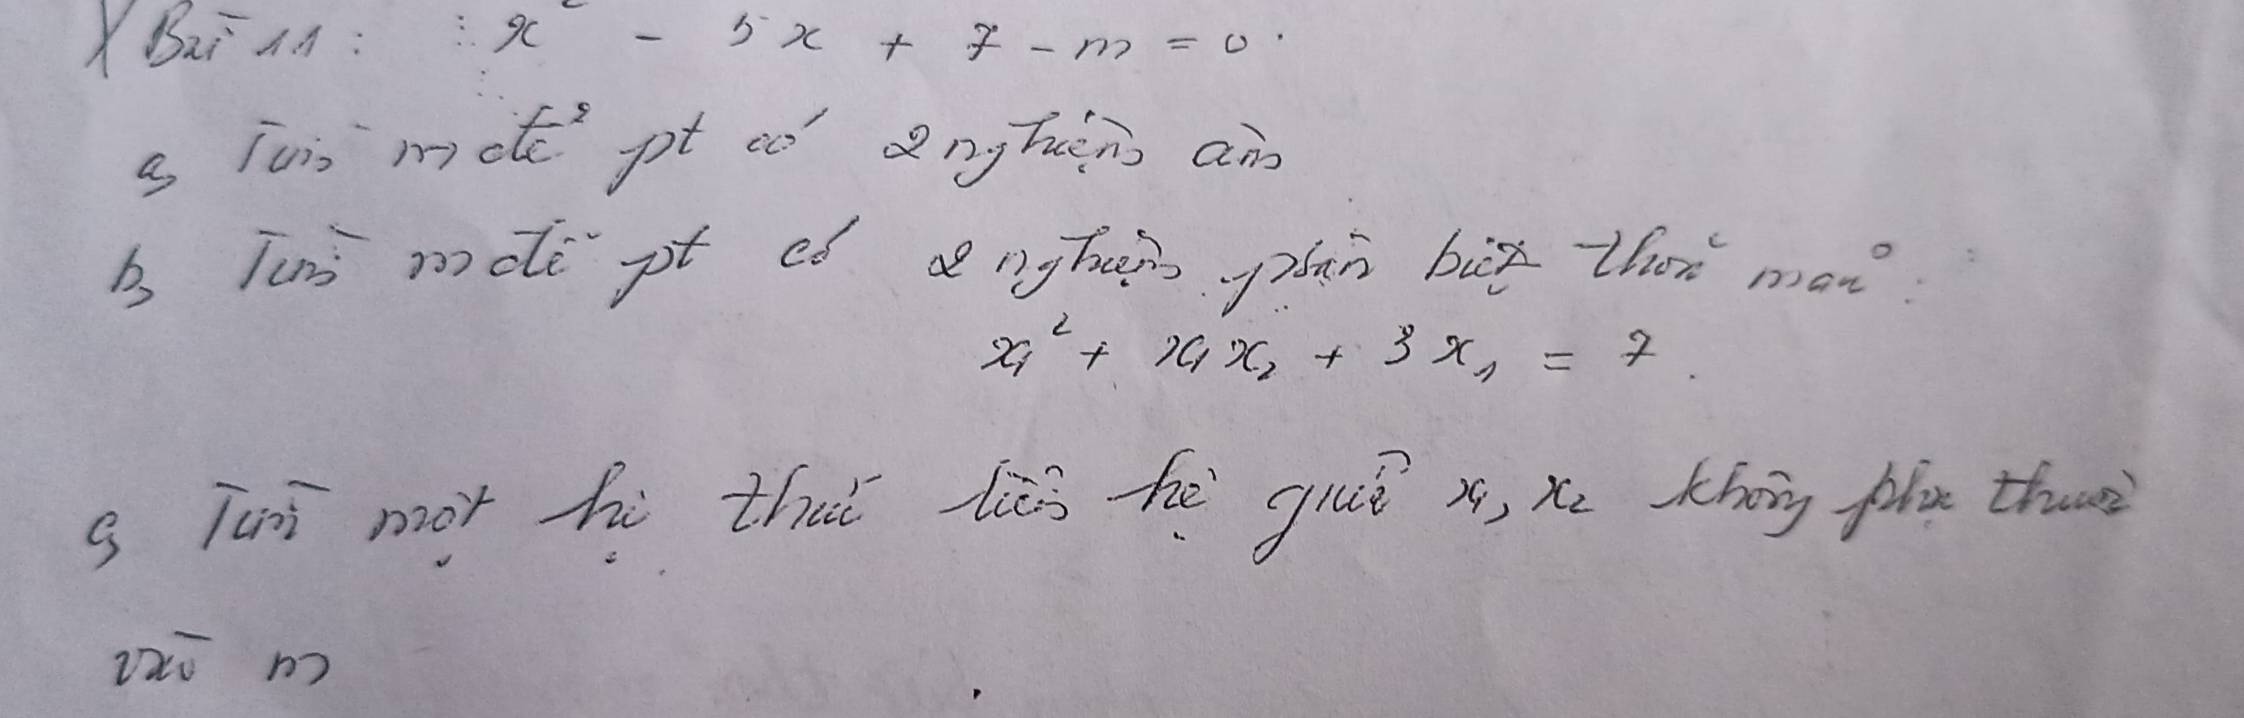 Bài 11: x² - 5x + 7 - m = 0.
a, Tìm m để pt có 2 nghiệm âm
b, Tìm m để pt có 2 nghiệm phân biệt thoả mãn:
x₁² + x₁x₂ + 3x₁ = 7.
c, Tìm một hệ thức liên hệ giữa x₁, x₂ không phụ thuộc
vào m